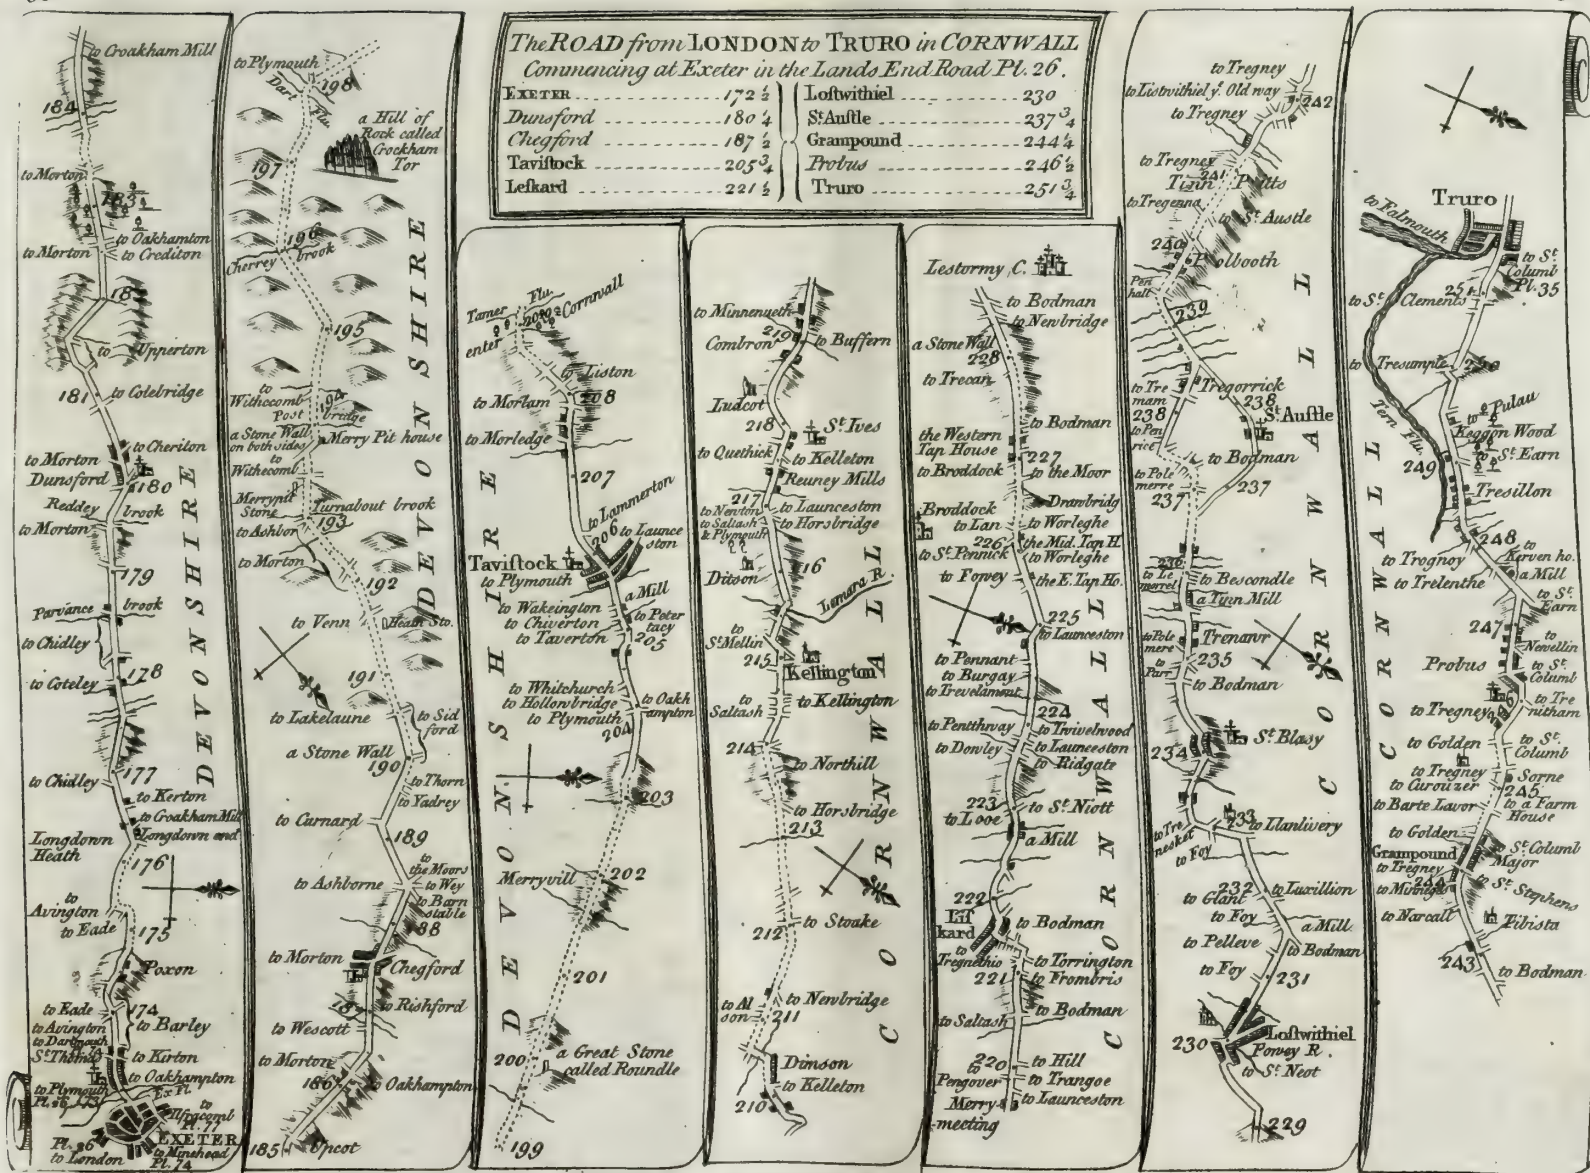 The ROAD from LONDON to TRURO in CORNWALL
Commencing at Exeter in the Lands End Road Pl. 26.
EXETER 172 1/2
Dunsford 180 1/4
Chegford 187 1/2
Taviſtock 205 3/4
Leſkard 221 1/2
Loſtwithiel 230
St Auſtle 237 3/4
Grampound 244 1/4
Probus 246 1/2
Truro 251 3/4
to Croakham Mill
184
to Morton
183
to Oakhamton
to Morton
to Crediton
to Upperton
181
to Colebridge
to Cheriton
to Morton
Dunsford
180
Reddey brook
to Morton
179
Parvance brook
to Chidley
178
to Coteley
177
to Chidley
to Kerton
to Croakham Mill
Longdown end
Longdown
Heath
176
to
Avington
to Eade
175
Poxon
to Eade
174
to Avington
to Barley
to Dartmouth
St Thomas
to Kirton
to Oakhampton
to Plymouth
to
Ilfracomb
Pl. 77
EXETER
Pl. 26
to London
to Minehead
Pl. 74
DEVONSHIRE
to Plymouth
198
Dart Flu.
a Hill of
Rock called
Crockham
Tor
197
196
Cherrey brook
195
to
Withecomb
194
Post bridge
a Stone Wall
on both sides
Merry Pit house
to
Withecomb
Merrypit
Stone
Turnabout brook
193
to Ashbor
to Morton
192
to Venn
Heath Sto.
191
to Lakelaune
to Sid
ford
a Stone Wall
190
to Thorn
to Yadrey
to Carnard
189
to
the Moors
to Ashborne
to Wey
to Barn
stable
188
to Morton
Chegford
to Rishford
to Wescott
to Morton
186
to Oakhampton
185
Upcot
DEVONSHIRE
Tamer Flu.
enter Cornwall
to Liston
208
to Morlam
to Morledge
207
to Lammerton
206
to Launce
ston
Taviſtock
to Plymouth
a Mill
to Wakeington
to Chiverton
to Peter
tacy
to Taverton
205
to Whitchurch
to Hollowbridge
to Oakh
ampton
to Plymouth
204
203
Merryvill
202
201
200
a Great Stone
called Roundle
199
DEVONSHIRE
to Minnenueth
219
Combron
to Buffern
Ludcot
218
St Ives
to Quethick
to Kelleton
Reuney Mills
217
to Launceston
to Newton
to Horsbridge
to Saltash
& Plymouth
216
Ditson
Lemara R.
to
St Mellin
215
Keſlington
to
Saltash
to Kellington
214
to Northill
to Horsbridge
213
to Stoake
212
to Al
son
to Newbridge
211
Dimson
to Kelleton
210
CORNWALL
Lestormy C.
to Bodman
to Newbridge
a Stone Wall
228
to Trecan
to Bodman
the Western
Tap House
227
to Broddock
to the Moor
to Drawbridg
Broddock
to Lan
to Worleghe
226
the Mid. Tap H.
to St Pennick
to Worleghe
to Fowey
the E. Tap Ho.
225
to Launceston
to Pennant
to Burgay
to Trevelamont
224
to Pentthway
to Trwivelwood
to Dowley
to Launceston
to Ridgate
223
to St Niott
to Looe
a Mill
222
Liſ
kard
to Bodman
to
Tregnethio
to Torrington
221
to Frombris
to Saltash
to Bodman
220
to Hill
to
Pengover
to Trangoe
Merry
meeting
to Launceston
CORNWALL
to Tregney
to Listwithiel ye. Old way
242
to Tregney
to Tregney
241
Tinn Pitts
to Tregenna
to St Austle
240
Polbooth
Pen
hall
239
to Tre
mam
Tregorrick
238
238
St Auſtle
to Pen
rice
to Bodman
to Pole
merre
237
237
236
to Le
morrel
to Bescondle
a Tinn Mill
to Pole
mere
Trenanr
235
to
Parr
to Bodman
234
St Blasy
233
to Llanlivery
to Tre
nesket
to Foy
232
to Luxillion
to Glant
to Foy
a Mill
to Pelleve
to Bodman
to Foy
231
Loſtwithiel
230
Fowey R.
to St Neot
229
CORNWALL
Truro
to Falmouth
to St
Columb
Pl. 35
251
to St Clements
to Tresumple
250
to Pulau
Keggon Wood
Tern Flu.
249
to St Earn
Tresillon
248
to Trognoy
to
Kerven ho.
to Trelenthe
a Mill
to St
Earn
247
to
Newellin
Probus
to St
Columb
246
to Tregney
to Tre
nitham
to Golden
to St
Columb
to Tregney
Sorne
to Curouzer
245
to Barte Lavor
to a Farm
House
to Golden
Grampound
to St Columb
Major
to Tregney
244
to St Stephens
to Narcalt
Fibista
243
to Bodman
CORNWALL